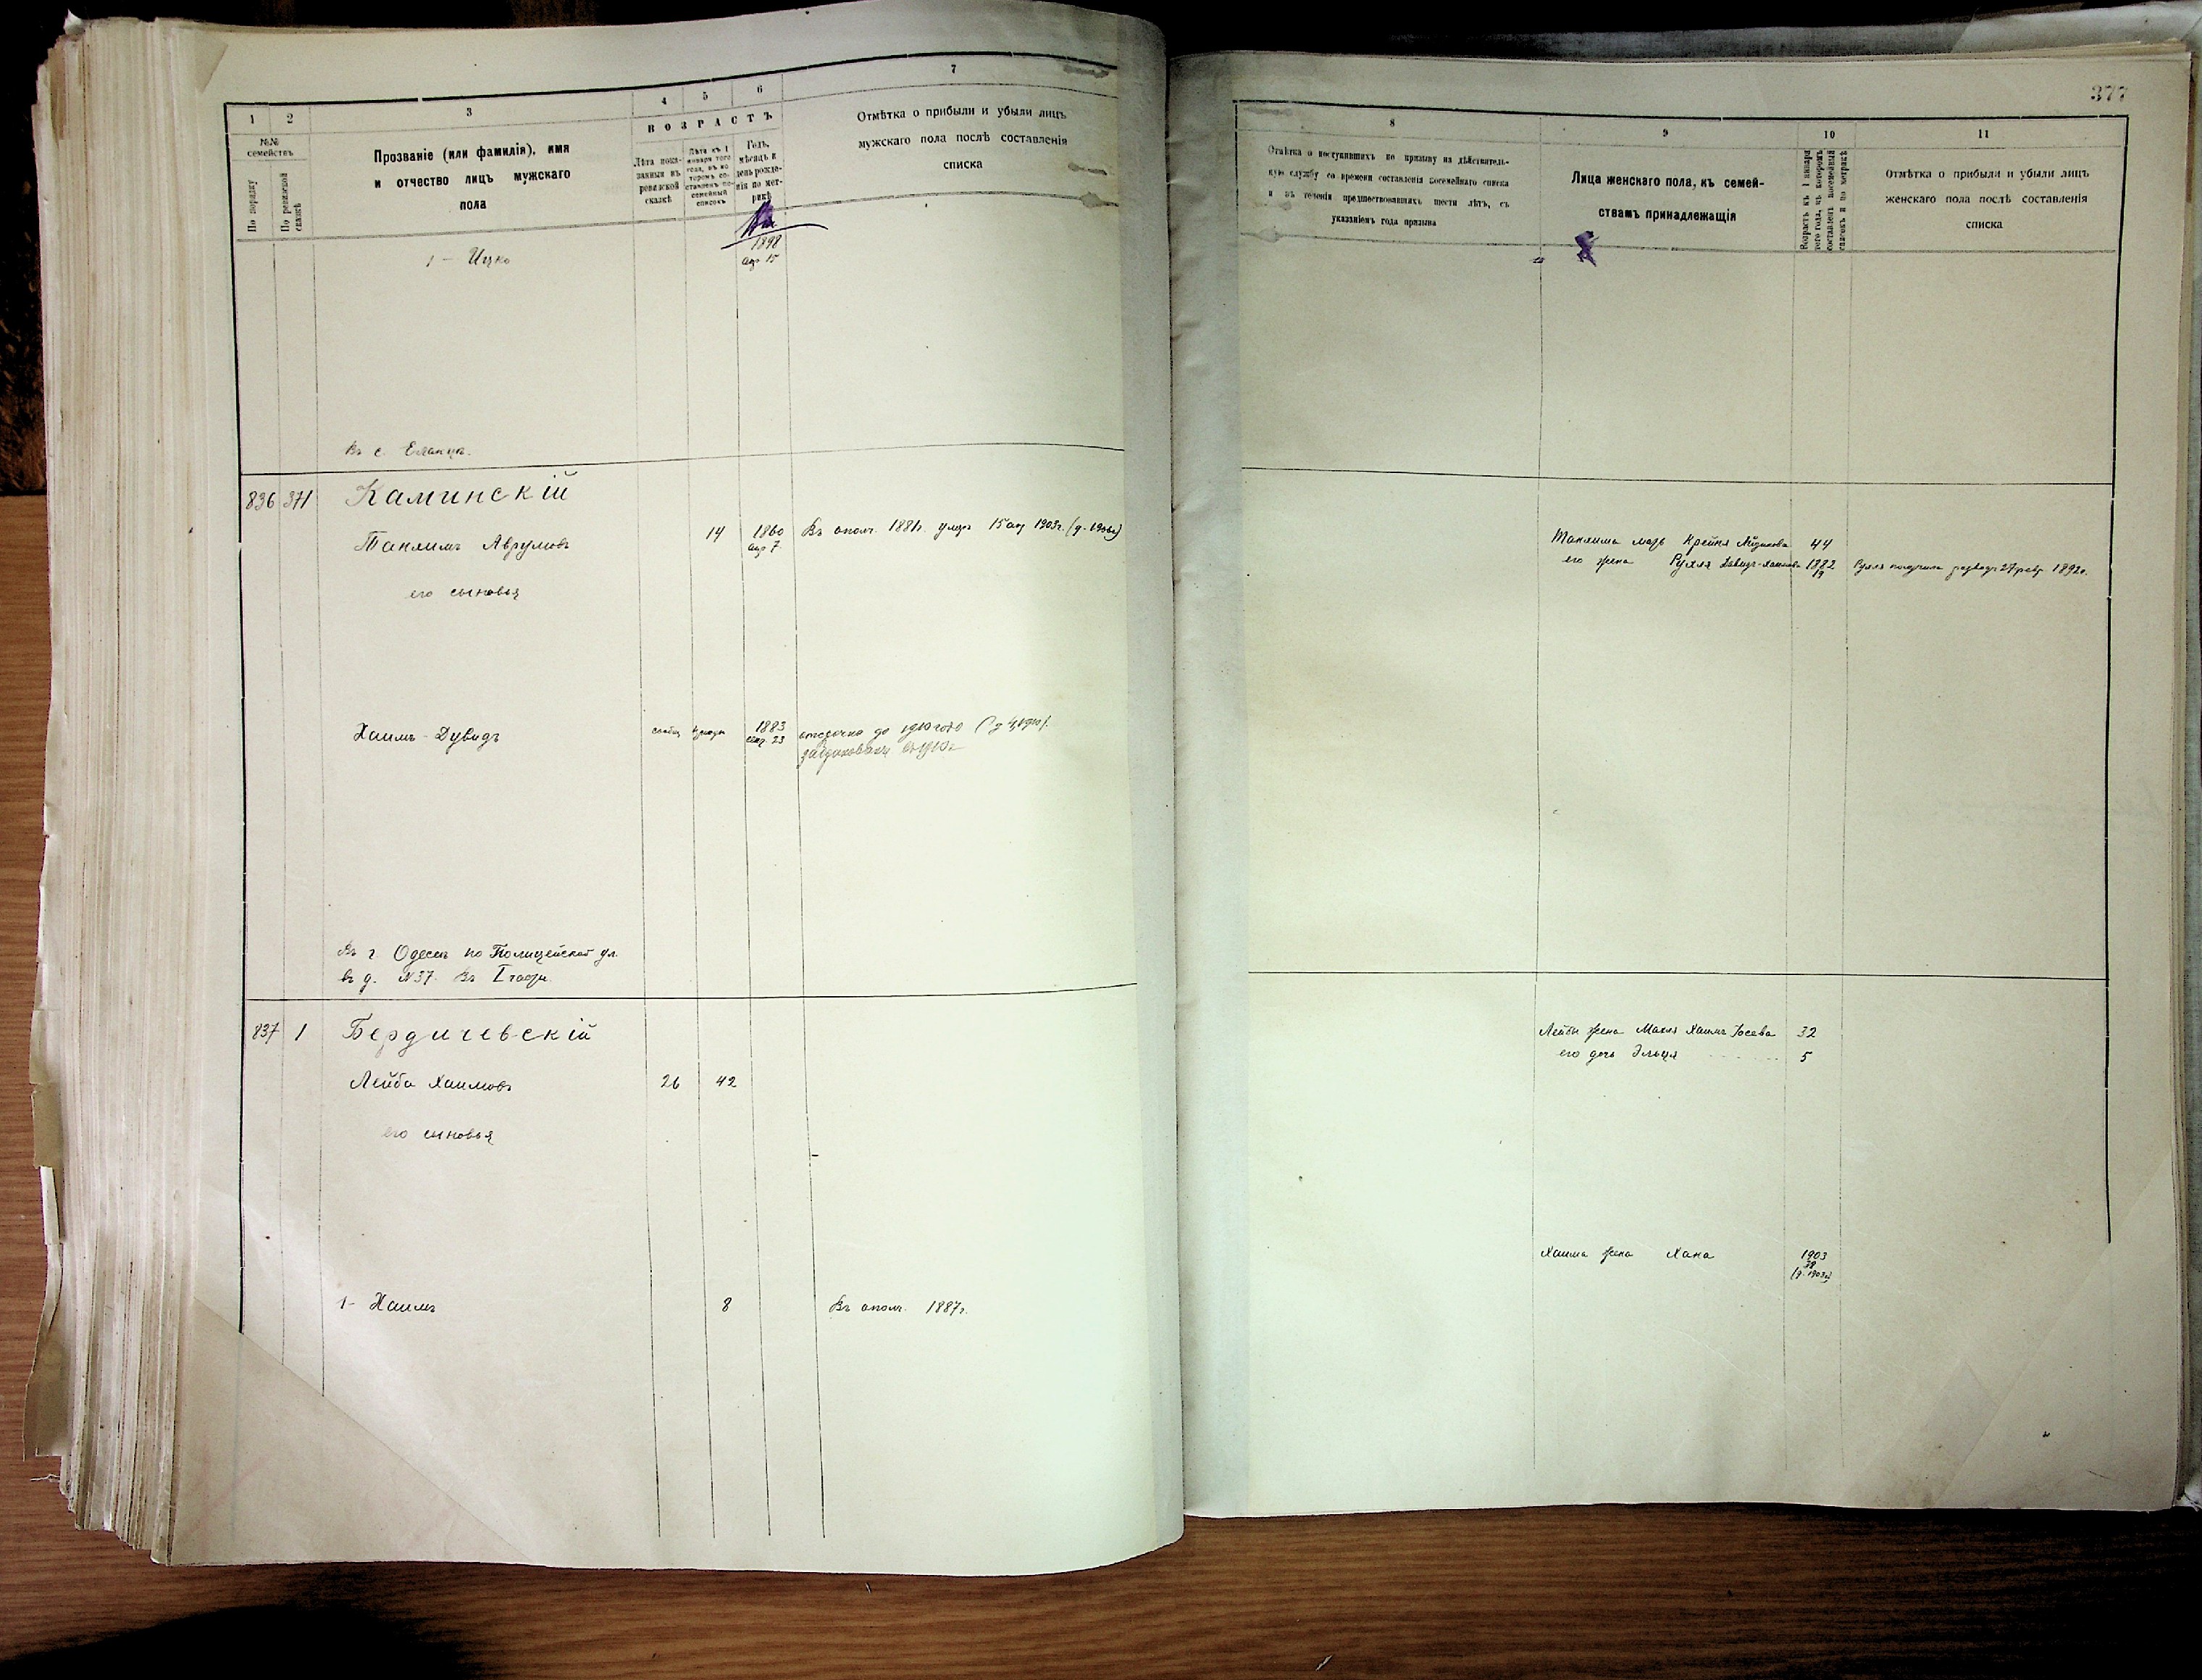 377
1
2
3
4
5
6
7
№№
семействъ
По порядку
По ревизской сказкѣ
Прозваніе (или фамилія), имя
и отчество лицъ мужскаго
пола
ВОЗРАСТЪ
Лѣта пока-
занныя въ
ревизской
сказкѣ
Лѣта къ 1
января того
года, въ ко-
торомъ со-
ставленъ по-
семейный
списокъ
Годъ,
мѣсяцъ и
день рожде-
нія по мет-
рикѣ
Отмѣтка о прибыли и убыли лицъ
мужскаго пола послѣ составленія
списка
1 - Ицко
1898
апр 15
Въ с. Еланцѣ.
836 371 Каминскій
Танхимъ Аврумовъ 14 1860 Въ ополч. 1881г. умеръ 15 апр 1903г.
апр 7
его сыновья
Хаимъ-Дувидъ 1883 отсрочка до 1910 года
23
Въ г. Одессѣ по Полицейской ул.
въ д. №37. Въ I части.
837 1 Бердичевскій
Лейба Хаимовъ 26 42
его сыновья
1- Хаимъ 8 Въ ополч. 1887г.
8
9
10
11
Отмѣтка о поступившихъ по призыву на дѣйствитель-
ную службу со времени составленія посемейнаго списка
и въ теченіи предшествовавшихъ шести лѣтъ, съ
указаніемъ года призыва
Лица женскаго пола, къ семей-
ствамъ принадлежащія
Возрастъ къ 1 января
того года, въ которомъ
составленъ посемейный
списокъ и по метрикѣ
Отмѣтка о прибыли и убыли лицъ
женскаго пола послѣ составленія
списка
Танхима мать Крейня 44
его жена Рухля 1882 Рухля получила разводъ 27 февр. 1892г.
19
Лейбы жена Махля Хаимъ-Іосева 32
его дочь Эльця 5
Хаима жена Хана 1903
(д. 1903г)